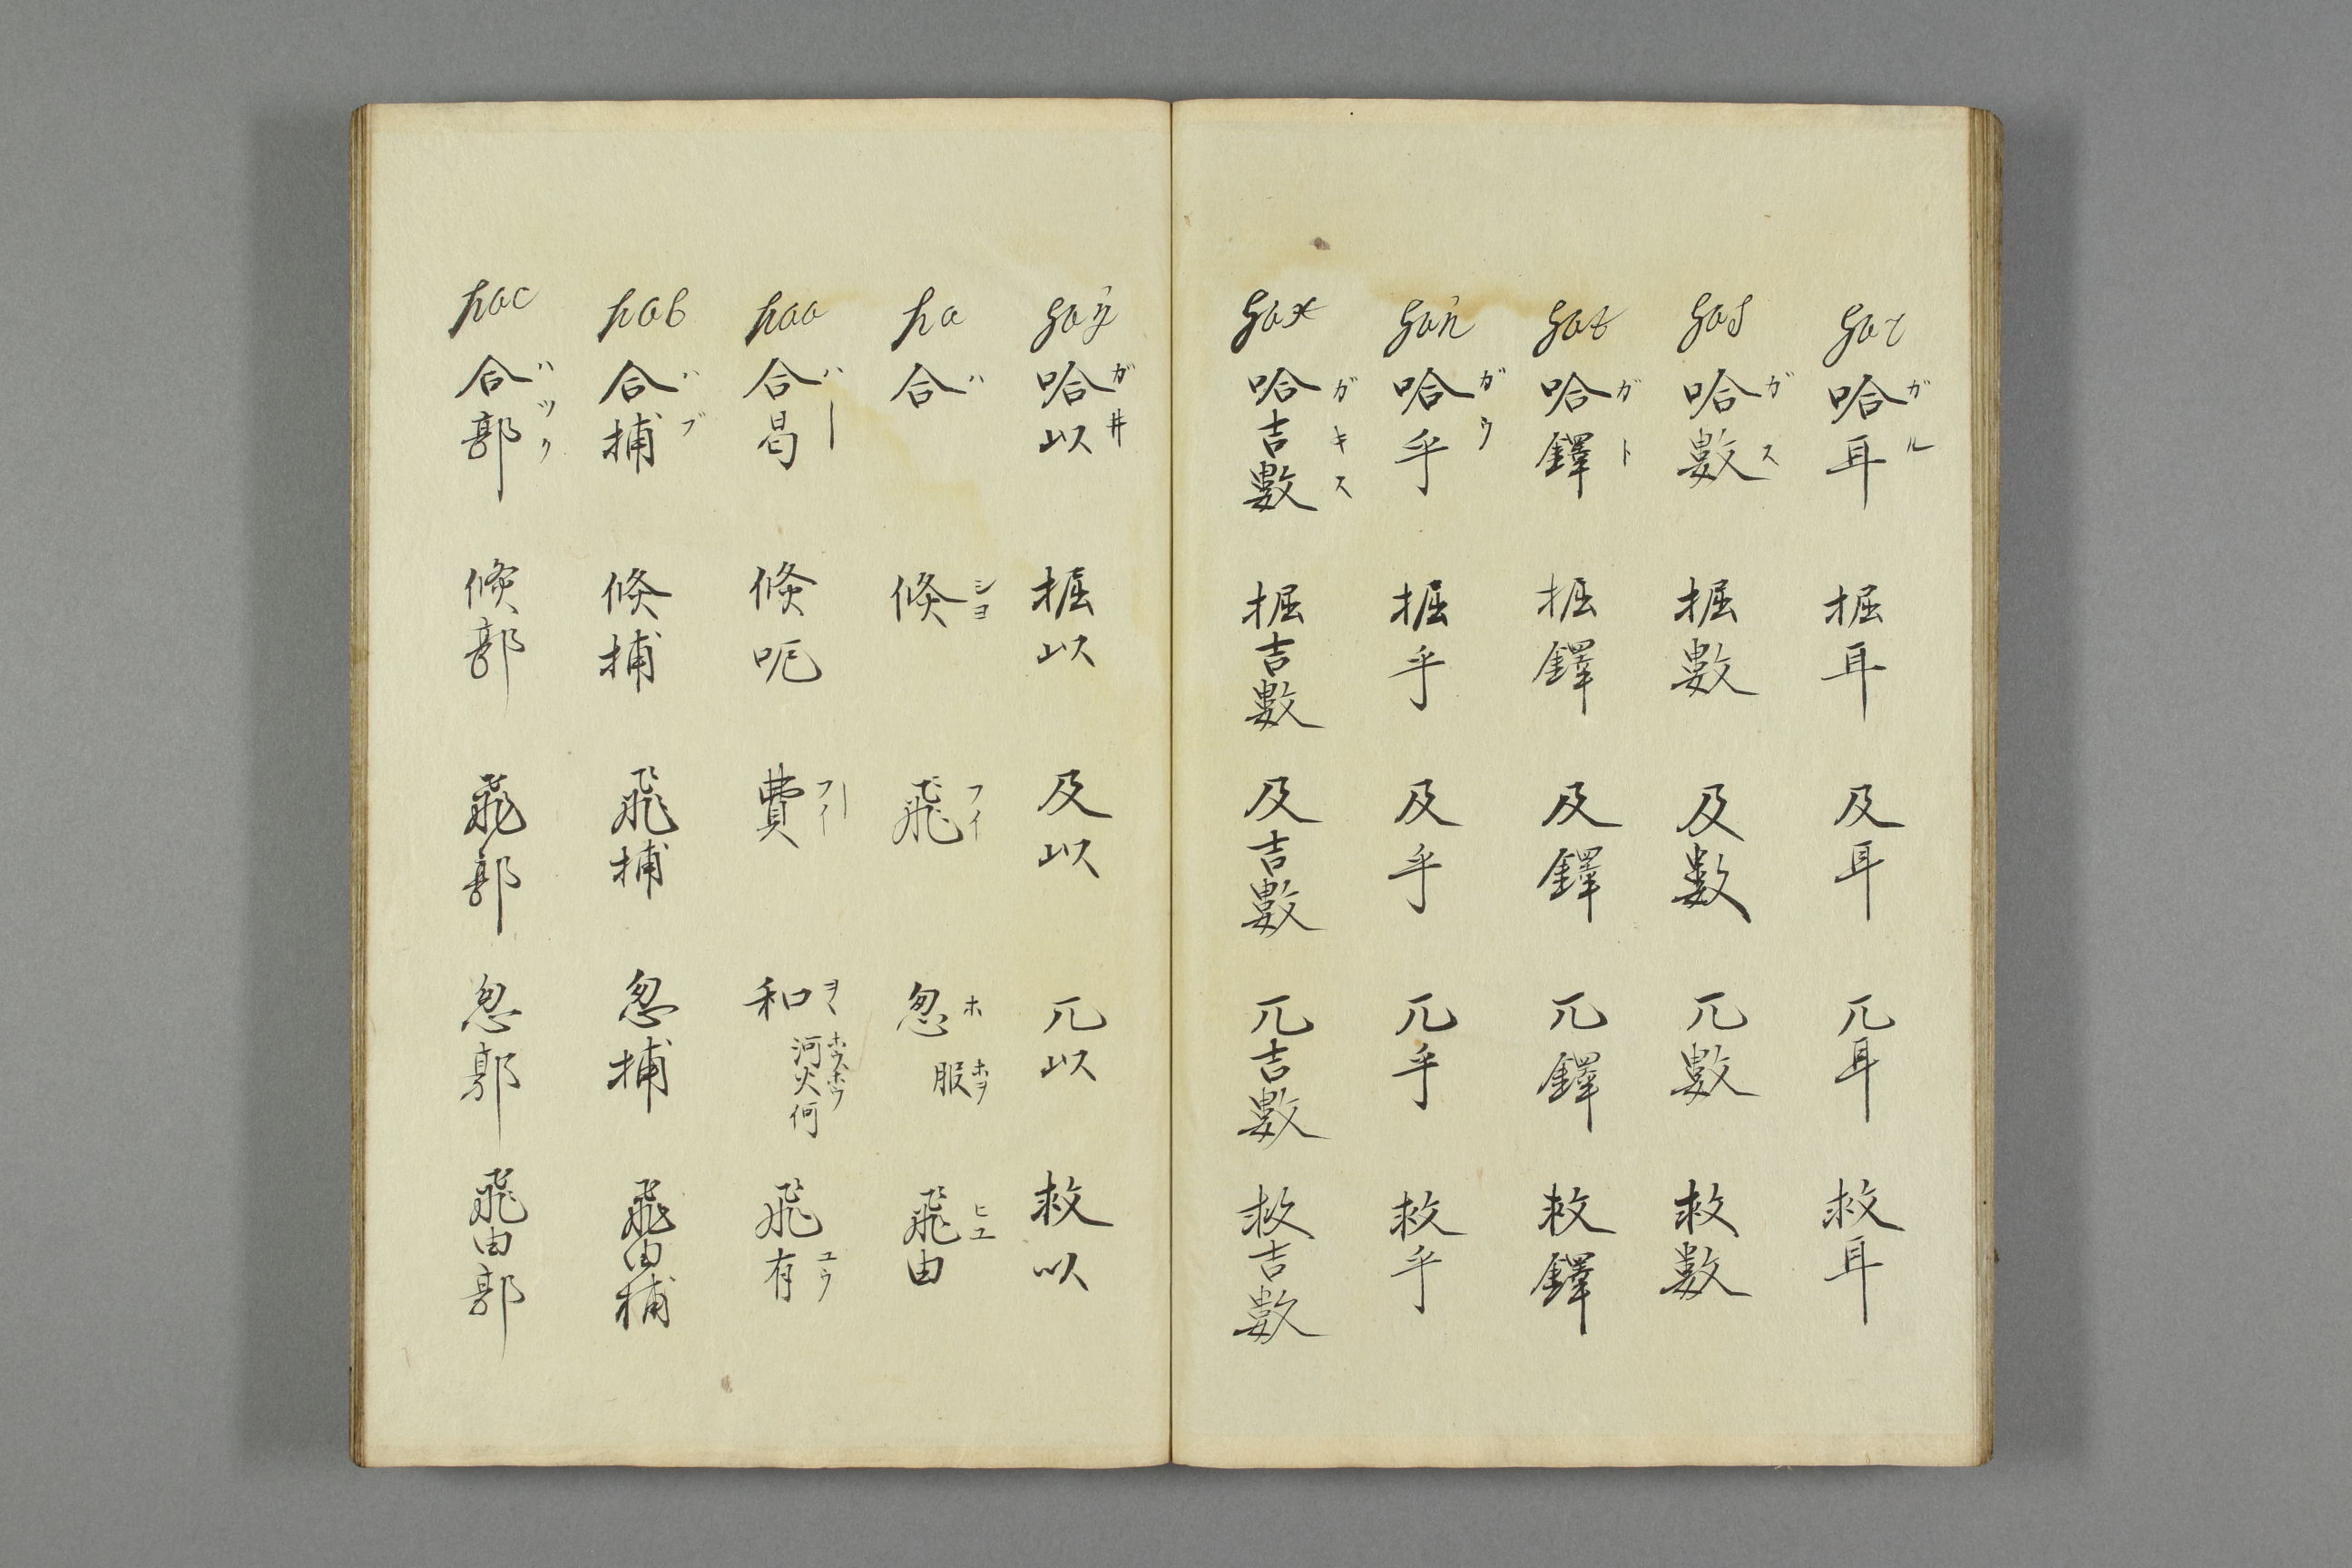 gar 哈耳 ガル 掘耳 及耳 兀耳 救耳
gas 哈數 ガス 掘數 及數 兀數 救數
gat 哈鐸 ガト 掘鐸 及鐸 兀鐸 救鐸
gaú 哈乎 ガウ 掘乎 及乎 兀乎 救乎
gax 哈吉數 ガキス 掘吉數 及吉數 兀吉數 救吉數
哈以 ガ井 掘以 及以 兀以 救以
ha 合 ハ 倏 ショ 飛 フイ 忽 ホ 服 ホヲ 飛由 ヒユ
haa 合曷 ハー 倏呃 費 フーイ 和 河火何 飛有 ユウ
hab 合捕 ハブ 倏捕 飛捕 忽捕 飛由捕
hac 合郭 ハツク 倏郭 飛郭 忽郭 飛由郭